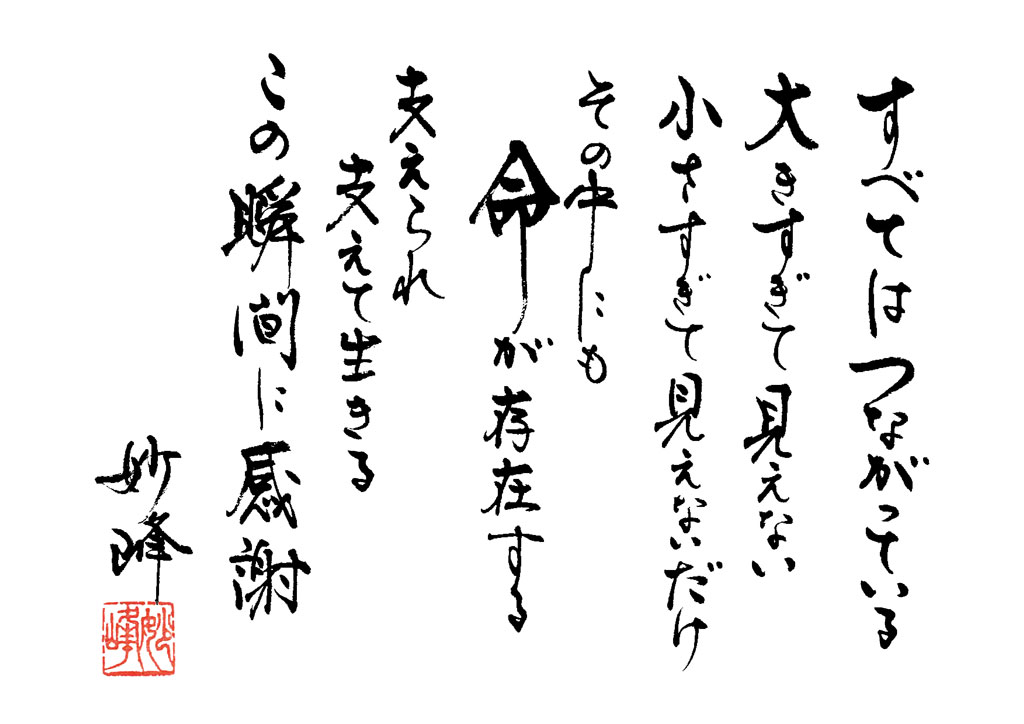 すべてはつながっている
大きすぎて見えない
小さすぎて見えないだけ
その中にも
命が存在する
支えられ
支えて生きる
この瞬間に感謝
妙峰
妙峰